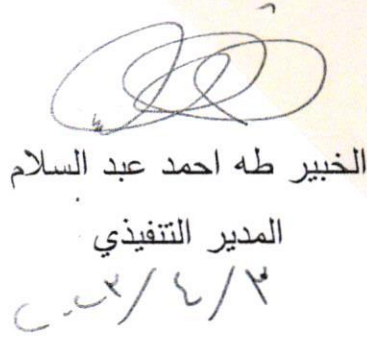 الخبير طه احمد عبد السلام
المدير التنفيذي
٢٠٢٣/٤/٣